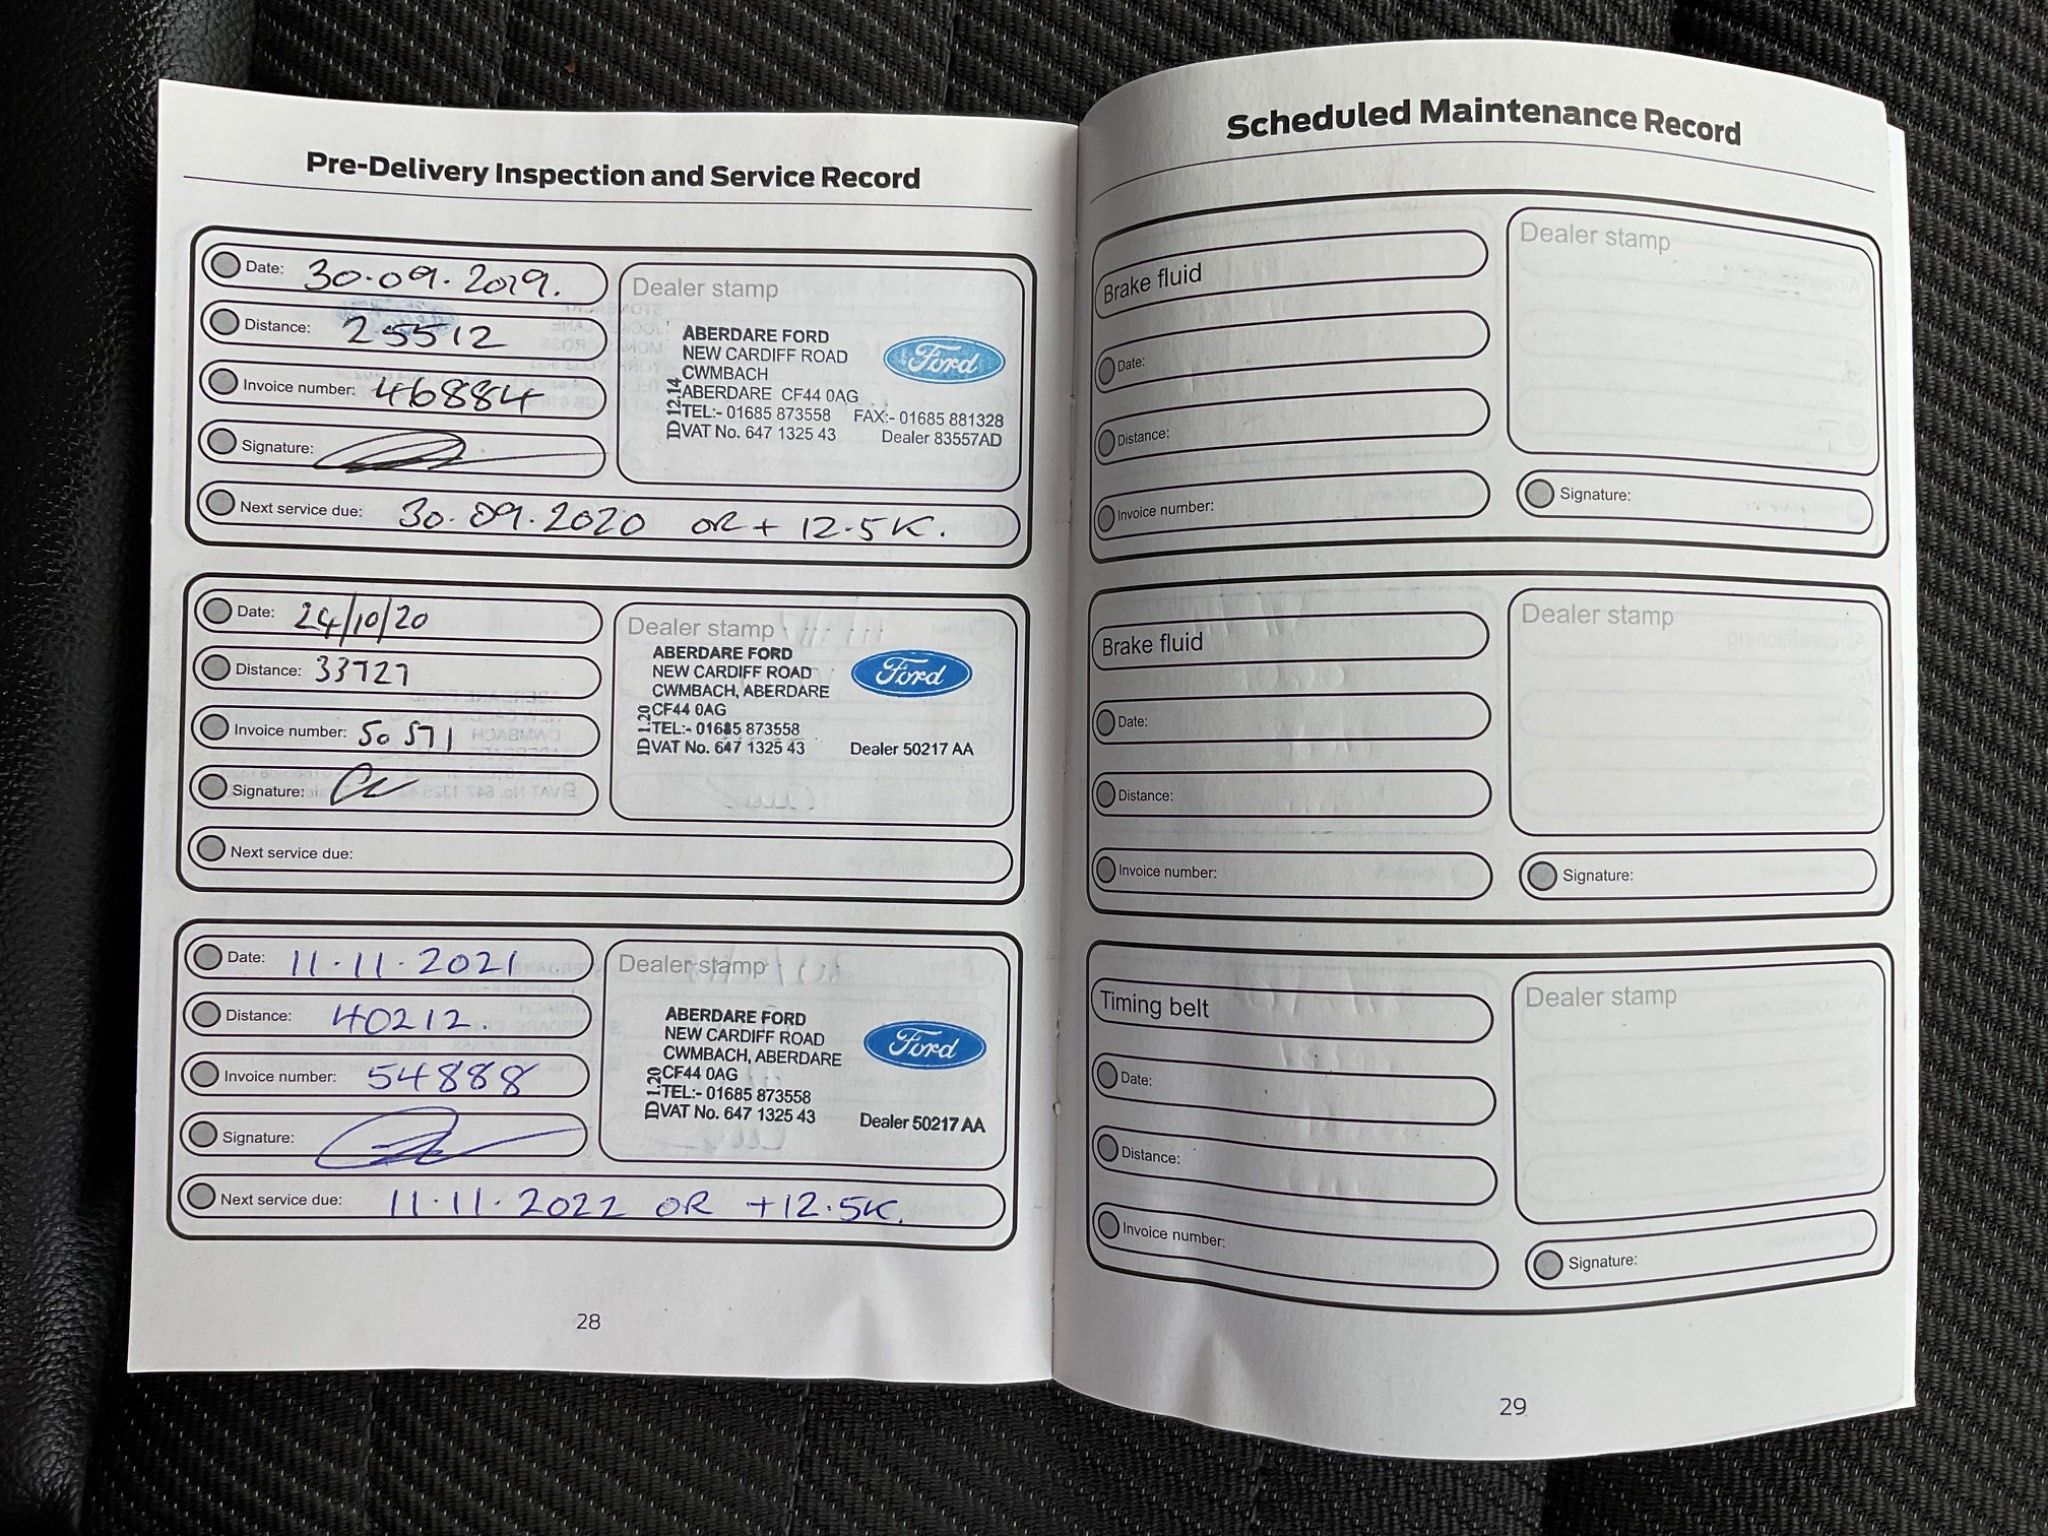 Pre-Delivery Inspection and Service Record
Date: 30.09.2019.
Distance: 25512
Invoice number: 46884
Signature:
Next service due: 30.09.2020 OR + 12.5K.
Dealer stamp
ABERDARE FORD
NEW CARDIFF ROAD
CWMBACH
ABERDARE CF44 0AG
TEL:- 01685 873558 FAX:- 01685 881328
VAT No. 647 1325 43 Dealer 83557AD
ID 12.14
Ford
Date: 24/10/20
Distance: 33727
Invoice number: 50571
Signature:
Next service due:
Dealer stamp
ABERDARE FORD
NEW CARDIFF ROAD
CWMBACH, ABERDARE
CF44 0AG
TEL:- 01685 873558
VAT No. 647 1325 43 Dealer 50217 AA
ID 1.20
Ford
Date: 11.11.2021
Distance: 40212.
Invoice number: 54888
Signature:
Next service due: 11.11.2022 OR +12.5K.
Dealer stamp
ABERDARE FORD
NEW CARDIFF ROAD
CWMBACH, ABERDARE
CF44 0AG
TEL:- 01685 873558
VAT No. 647 1325 43 Dealer 50217 AA
ID 1.20
Ford
28
Scheduled Maintenance Record
Brake fluid
Date:
Distance:
Invoice number:
Dealer stamp
Signature:
Brake fluid
Date:
Distance:
Invoice number:
Dealer stamp
Signature:
Timing belt
Date:
Distance:
Invoice number:
Dealer stamp
Signature:
29